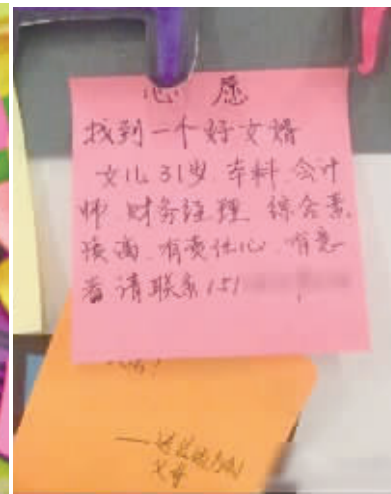 心愿
找到一个好女婿
女儿31岁 本科 会计
师 财务经理 综合素
质高 有责任心 有意
者请联系 151
父母